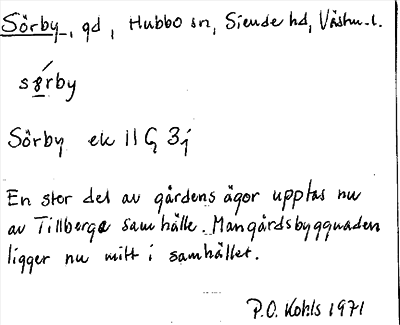 Sörby, gd, Hubbo sn, Siende hd, Västm. l.
sørby
Sörby ek 11 G 3j
En stor del av gårdens ägor upptas nu
av Tillberga samhälle. Mangårdsbyggnaden
ligger nu mitt i samhället.
P.O. Kohls 1971